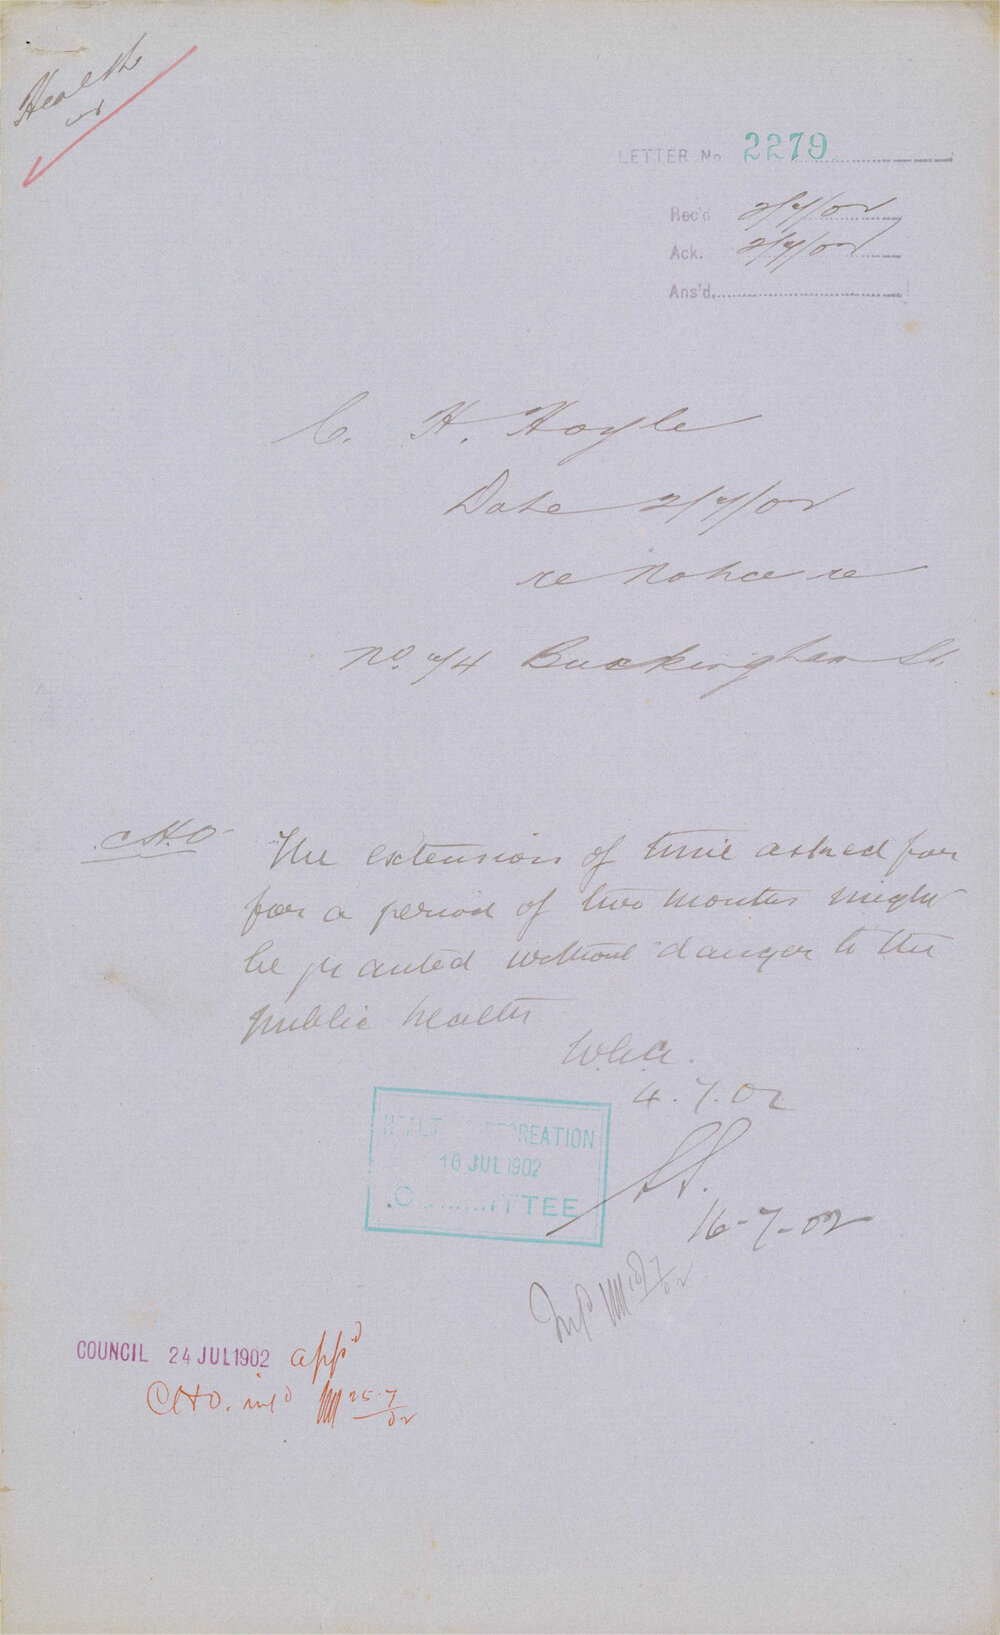 Health
LETTER No 2279
Rec'd 2/7/02
Ack. 2/7/02
Ans'd.
C. H. Hoyle
Date 2/7/02
re Notice re
No. 2/4 Buckingham St.
CHO The extension of time asked for
for a period of two months might
be granted without danger to the
public health
W.G.A.
4.7.02
HEALT RECREATION
16 JUL 1902
C MITTEE
SS.
16-7-02
Inf'd
COUNCIL 24 JUL 1902 app'd
CHO. inf'd 25.7/02